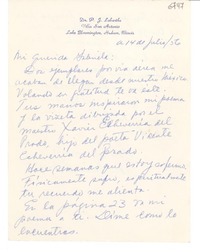 6797
Dr. P. J. Labarthe
Villa San Antonio
Lake Bennington, Hudson, Illinois
a 14 de Julio/56
Mi querida Gabriela:
Dos ejemplares por vía aérea mi
acaba de llegar desde nuestro México.
Volando en paloma te va este.
Tus manos inspiraron mi poema
y la viñeta dibujada por el
maestro Xavier Echeverría del
Prado, hijo del poeta Vicente
Echeverría del Prado.
Hace semanas que estoy enfermo.
Físicamente sufro, espiritualmente
tu recuerdo me alienta.
En la página 23 va mi
poema a ti. Dime como lo
encuentras.